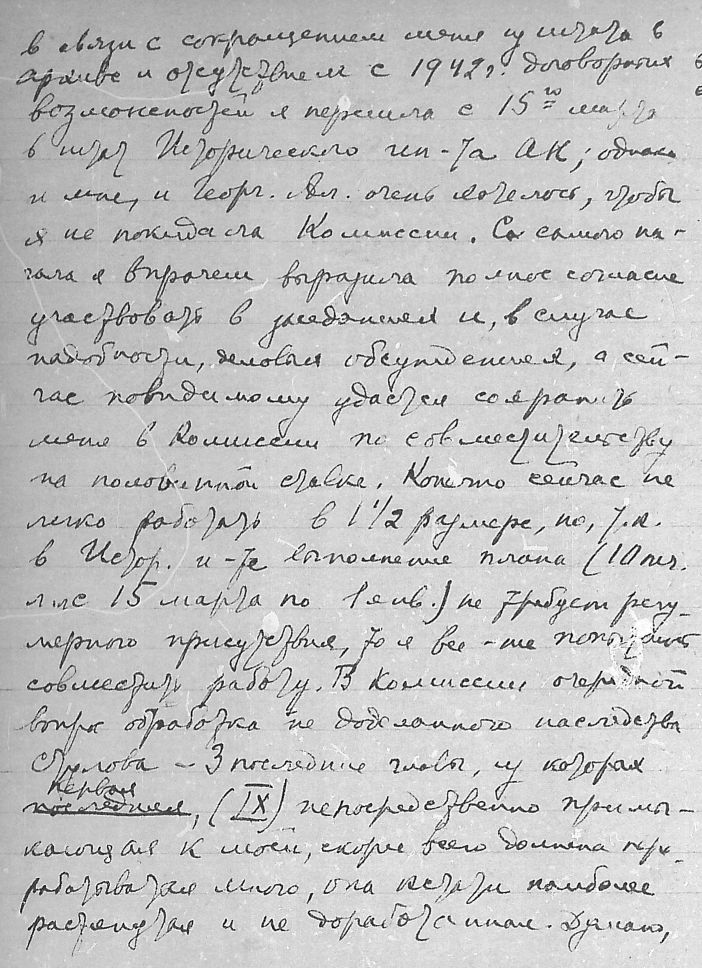 в связи с сокращением меня из штата в
архиве и отсутствием с 1942 г. договорных
возможностей я перешла с 15го марта
в штат Исторического ин-та АН; однако
и мне, и Георг. Ал. очень хотелось, чтобы
я не покидала Комиссии. С самого на-
чала я впрочем выразила полное согласие
участвовать в заседаниях и, в случае
надобности, деловых обсуждениях, а сей-
час повидимому удастся сохранить
меня в Комиссии по совместительству
на половинной ставке. Конечно сейчас не
легко работать в 1 1/2 размере, но, т.к.
в Истор. и-те выполнение плана (10 печ.
л. с 15 марта по 1 янв.) не требует регу-
мерного присутствия, то я все-же попытаюсь
совместить работу. В Комиссии очередной
вопрос обработка не доделанного наследства
– 3 последние главы, из которых
первая
последняя, (IX) непосредственно примы-
кающая к моей, скорее всего должна пере-
рабатываться мною, она кстати наиболее
растянутая и не доработанная. Думаю,